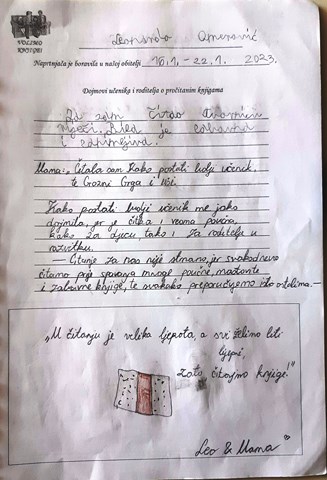 VOLIMO
KNJIGE!
Leonardo Omerović
Naprtnjača je boravila u našoj obitelji 16.1. - 22.1. 2023.
Dojmovi učenika i roditelja o pročitanim knjigama
Ja sam čitao
je zabavna
i zanimljiva.
Mama: Čitala sam Kako postati bolji učenik,
te Grozni Grga i Uši.
Kako postati bolji učenik me jako
dojmila, jer je čitka i veoma poučna,
kako za djecu tako i za roditelje u
razvitku.
- Čitanje za nas nije strano, jer svakodnevno
čitamo prije spavanja mnoge poučne, maštovite
i zabavne knjige, te svakako preporučujemo i to ostalima. -
„U čitanju je velika ljepota, a svi želimo biti
lijepi,
zato čitajmo knjige!“
Leo & Mama